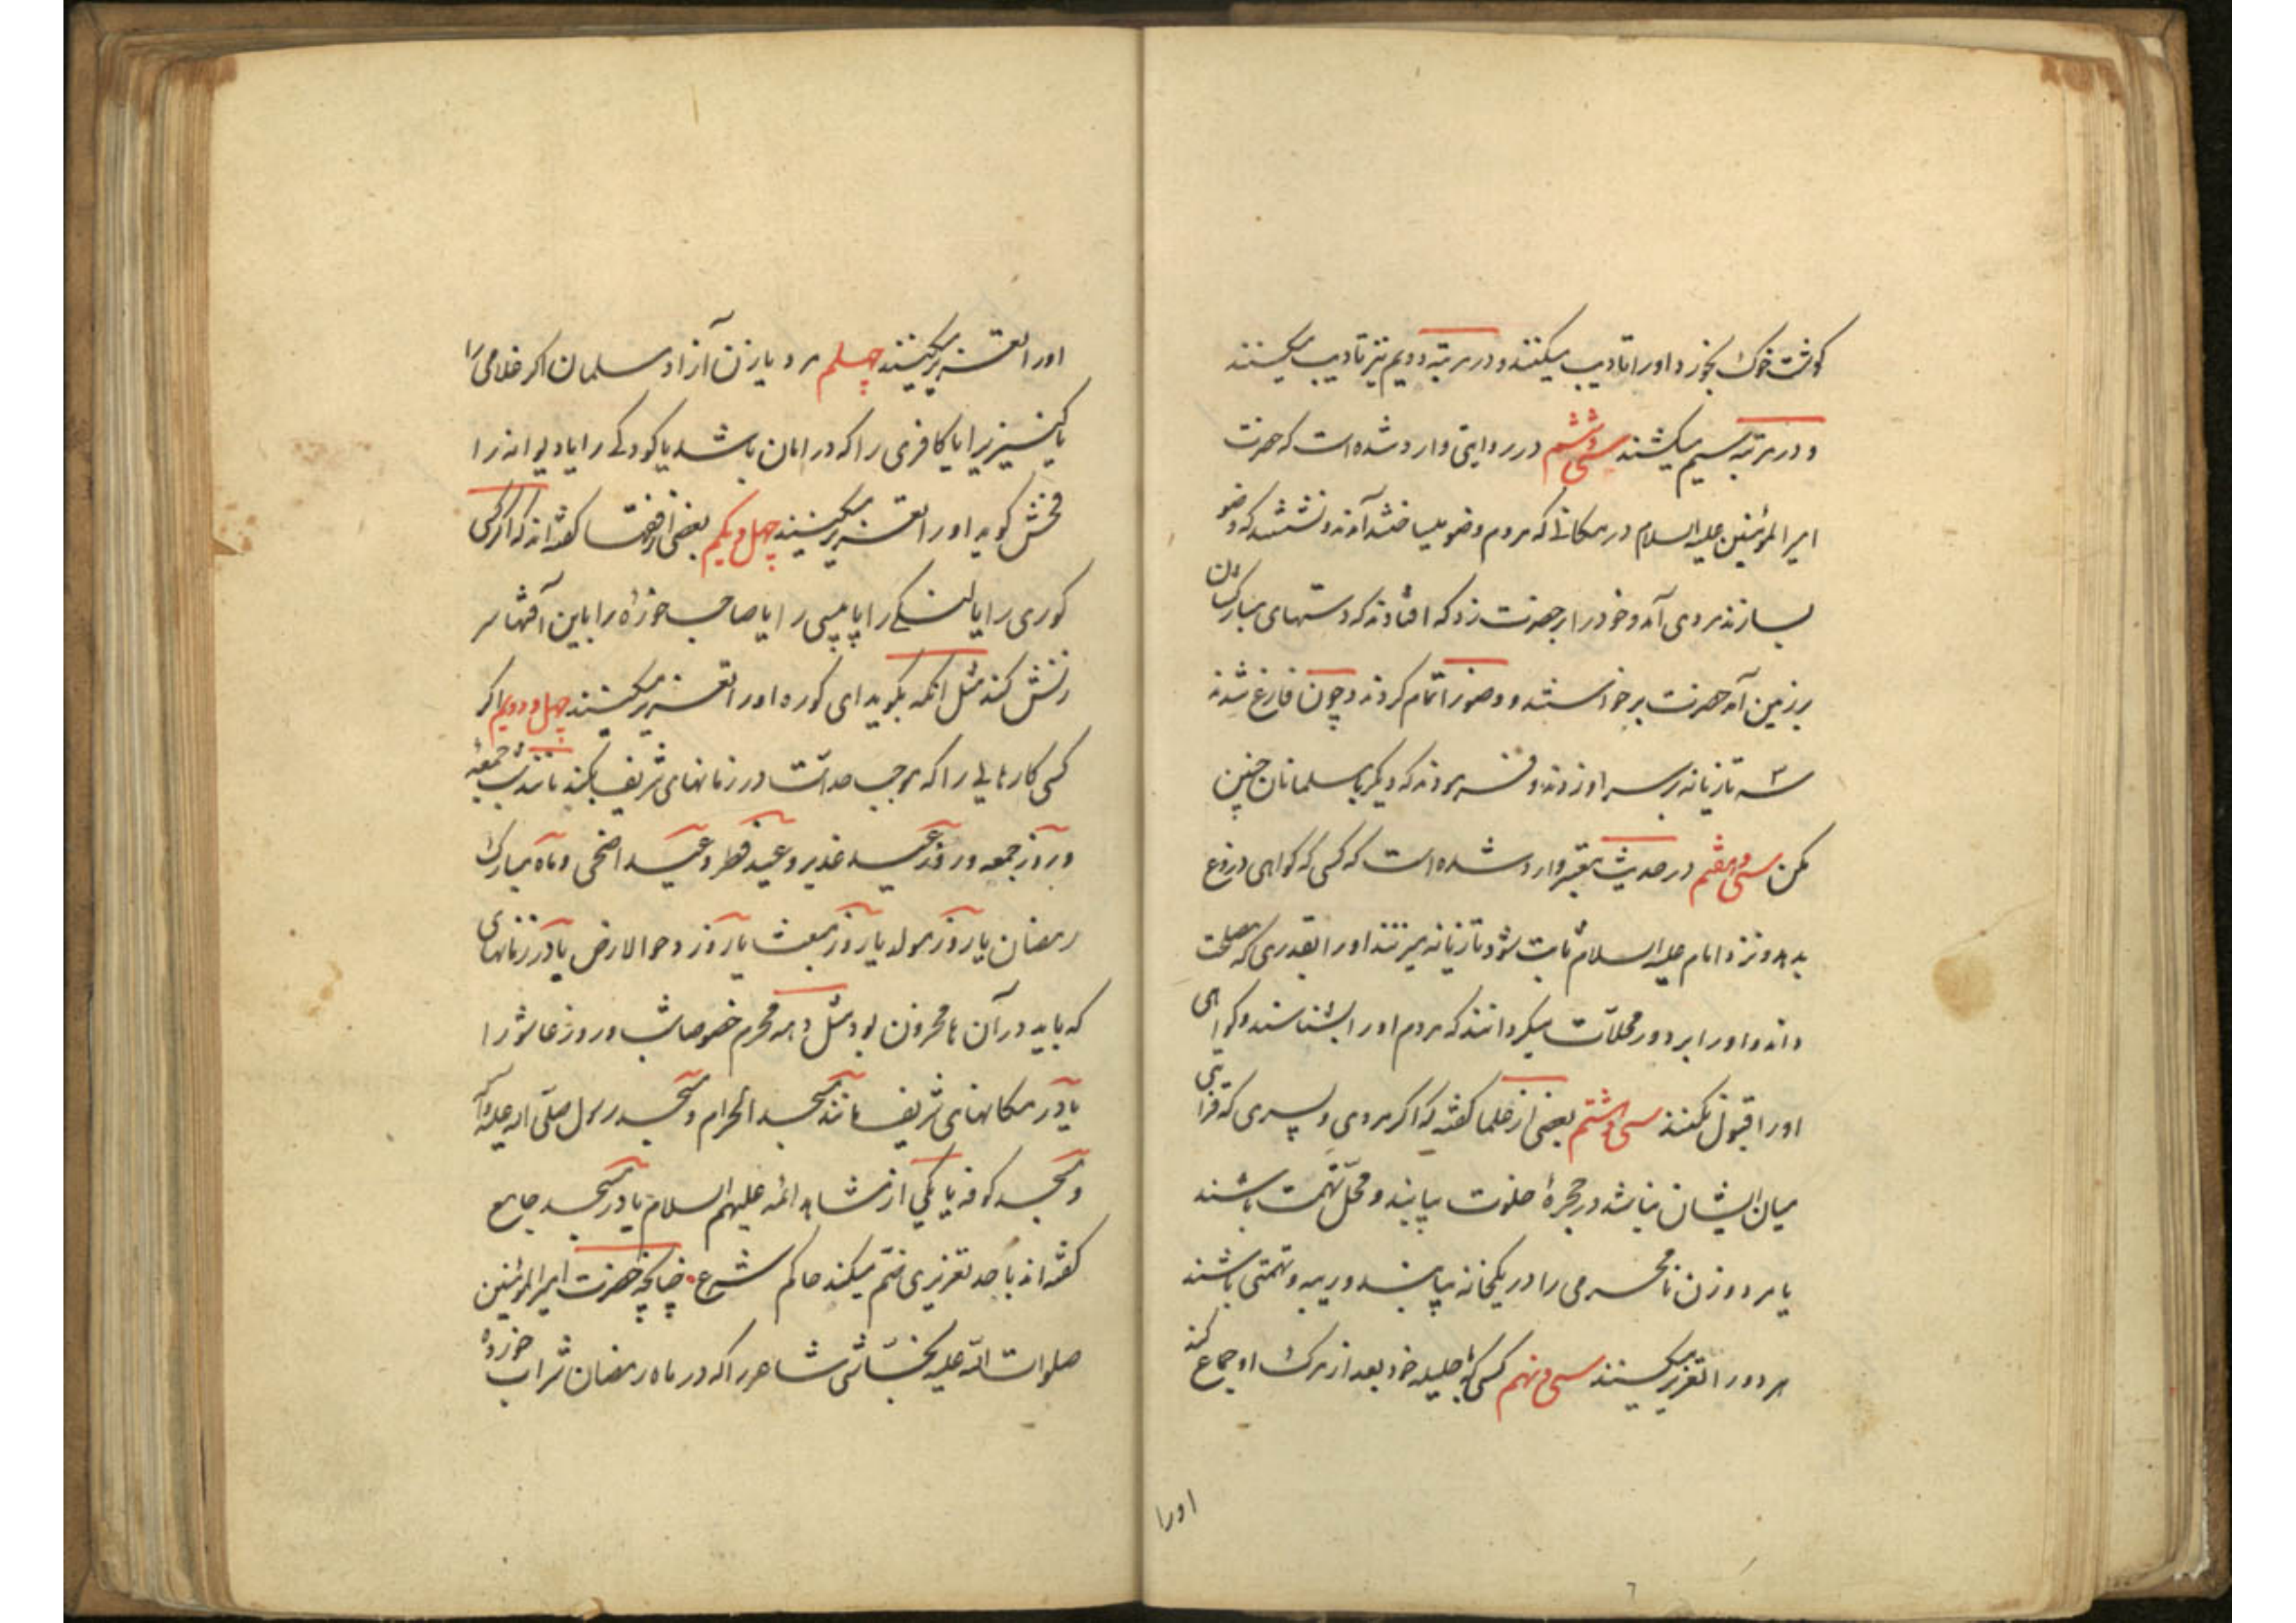 گوشت خوک بخورد اورا تادیب میکنند و در مرتبه دویم نیز تادیب میکنند
و در مرتبه سیم میکشند سی و ششم در روایتی وارد شده است که حضرت
امیر المؤمنین علیه السلام در مکانی که مردم وضو میساختند آمدند و نشستند که وضو
بسازند مردی آمد و خود را بر حضرت زد که افتادند که دستهای مبارکشان
بر زمین آمد حضرت برخواستند و وضو را تمام کردند و چون فارغ شدند
سه تازیانه بر سر او زدند و فرمودند که دیگر با مسلمانان چنین
مکن سی و هفتم در حدیث معتبر وارد شده است که کسی که گواهی دروغ
بدهد و نزد امام علیه السلام ثابت شود تازیانه میزنند اورا بقدری که مصلحت
داند و اورا بر دور محلات میگردانند که مردم اورا بشناسند و گواهی
اورا قبول نکنند سی و هشتم بعضی از علما گفته که اگر مردی و پسری که قرابتی
میان ایشان نباشد در حجرهٔ خلوت بیابند و محل تهمت باشند
یا مرد و زن نامحرمی را در یکخانه بیابند و ریبه و تهمتی باشند
هر دو را تعزیر میکنند سی و نهم کسی که با حلیله خود بعد از مرک او جماع کند
اورا
اورا تعزیر میکنند چهلم مرد یا زن آزاد مسلمان اگر غلامی را
یا کنیزیرا یا کافری را که در امان باشد یا کودکی را یا دیوانه را
فحش گوید اورا تعزیر میکنند چهل و یکم بعضی از فقها گفته اند که اگر کسی
کوری را یا لنگی را یا پیسی را یا صاحب خوره را باین آفتها سر
زنش کند مثل آنکه بگوید ای کوره اورا تعزیر میکنند چهل و دویم اگر
کسی کارهایی را که موجب حد است در زمانهای شریف بکند مانند شب جمعه
و روز جمعه و روز عید غدیر و عید فطر و عید اضحی و ماه مبارک
رمضان یا روز مولد یا روز مبعث یا روز دحو الارض یا در زمانهای
که باید در آن محزون بود مثل دهه محرم خصوصا شب و روز عاشورا
یا در مکانهای شریف مانند مسجد الحرام و مسجد رسول صلی الله علیه وآله
و مسجد کوفه یا یکی از مشاهد ائمه علیهم السلام یا در مسجد جامع
گفته اند با حد تعزیری ضم میکند حاکم شرع چنانچه حضرت امیر المؤمنین
صلوات الله علیه نجاشی شاعر را که در ماه رمضان شراب خورده